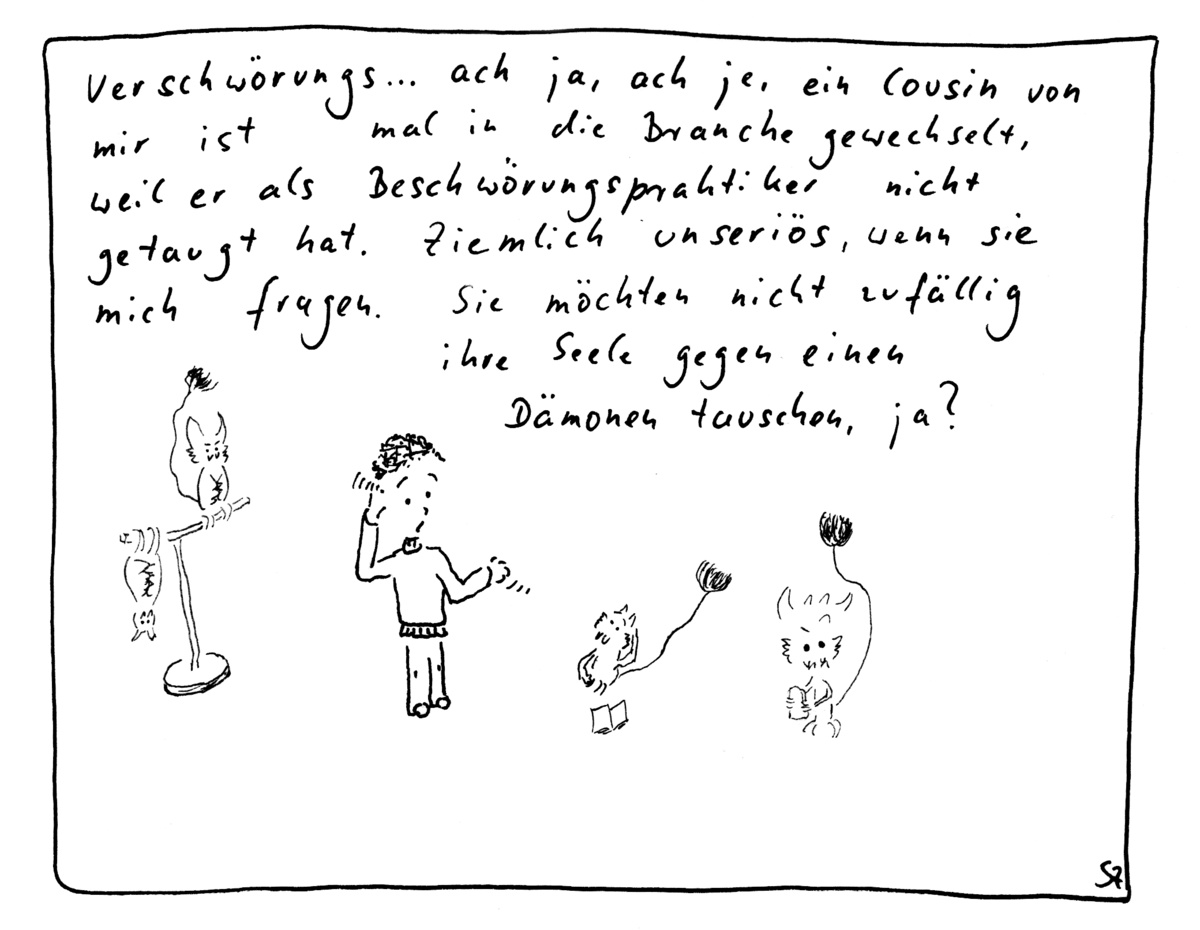 Verschwörungs... ach ja, ach je, ein Cousin von
mir ist mal in die Branche gewechselt,
weil er als Beschwörungspraktiker nicht
getaugt hat. Ziemlich unseriös, wenn sie
mich fragen. Sie möchten nicht zufällig
ihre Seele gegen einen
Dämonen tauschen, ja?